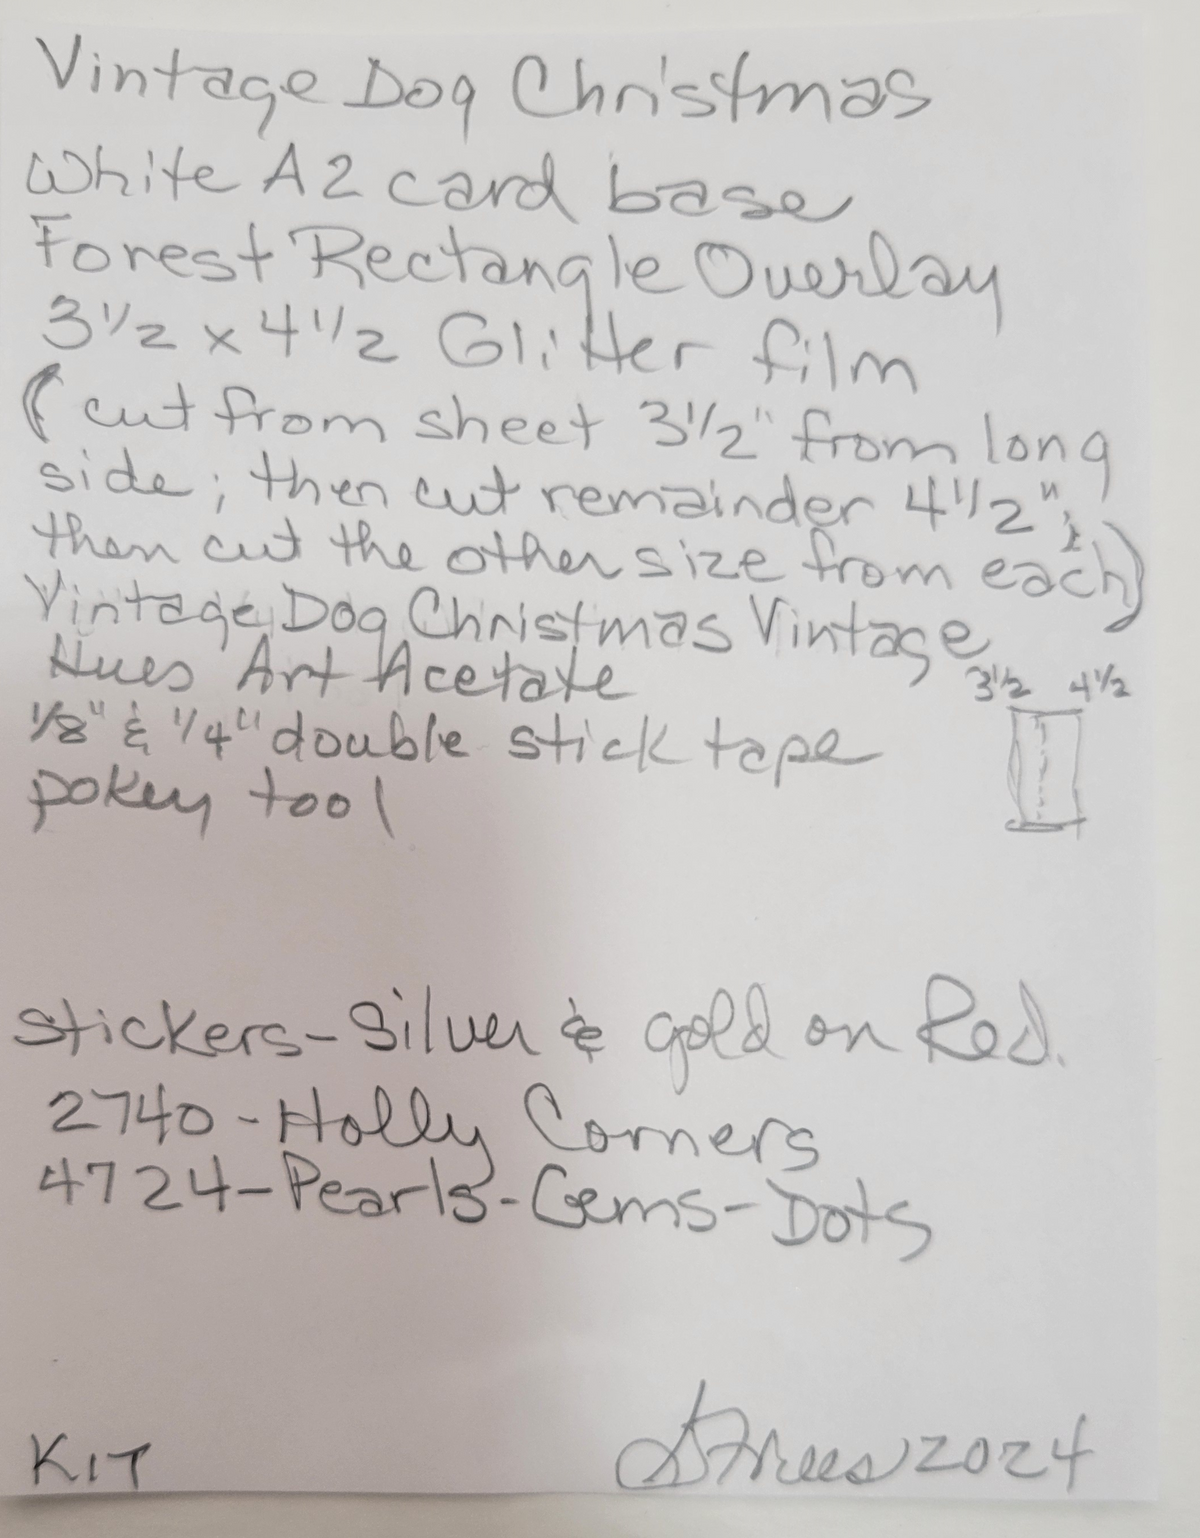 Vintage Dog Christmas
White A2 card base
Forest Rectangle Overlay
3 1/2 x 4 1/2 Glitter film
(cut from sheet 3 1/2" from long
side; then cut remainder 4 1/2";
then cut the other size from each)
Vintage Dog Christmas Vintage
Hues Art Acetate
3 1/2 4 1/2
1/8" & 1/4" double stick tape
pokey tool
Stickers-Silver & gold on Red.
2740-Holly Corners
4724-Pearls-Gems-Dots
KIT
2024